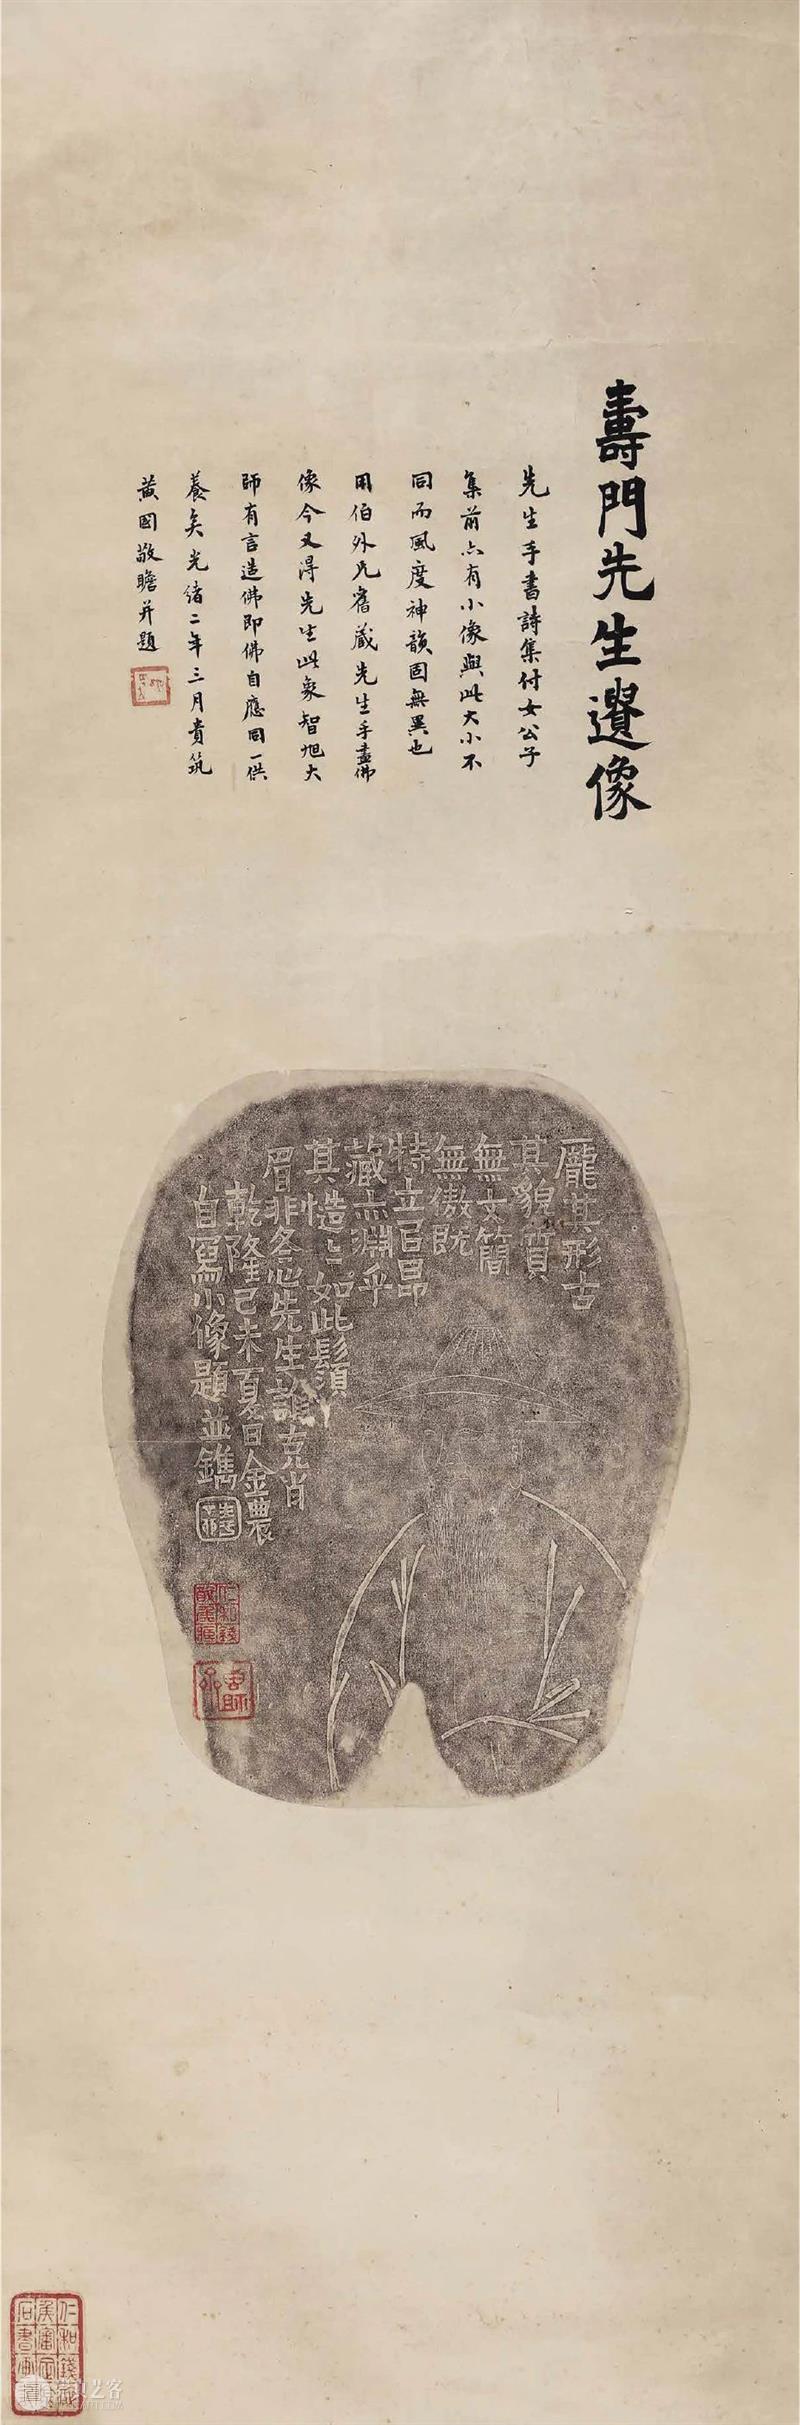 壽門先生遺像
先生手書詩集付女公子
集前亦有小像與此大小不
同而風度神韻固無異也
用伯外兄舊藏先生手畫佛
像今又得先生此象智旭大
師有言造佛即佛自應同一供
養矣光緒二年三月貴筑
黃國敬瞻并題
龐其形古
其貌質
無文簡
無傲既
特立吕昂
藏亦淵乎
其慥〻如此鬚
眉非冬心先生誰克肖
乾隆己未夏日金農
自寫小像題並鐫